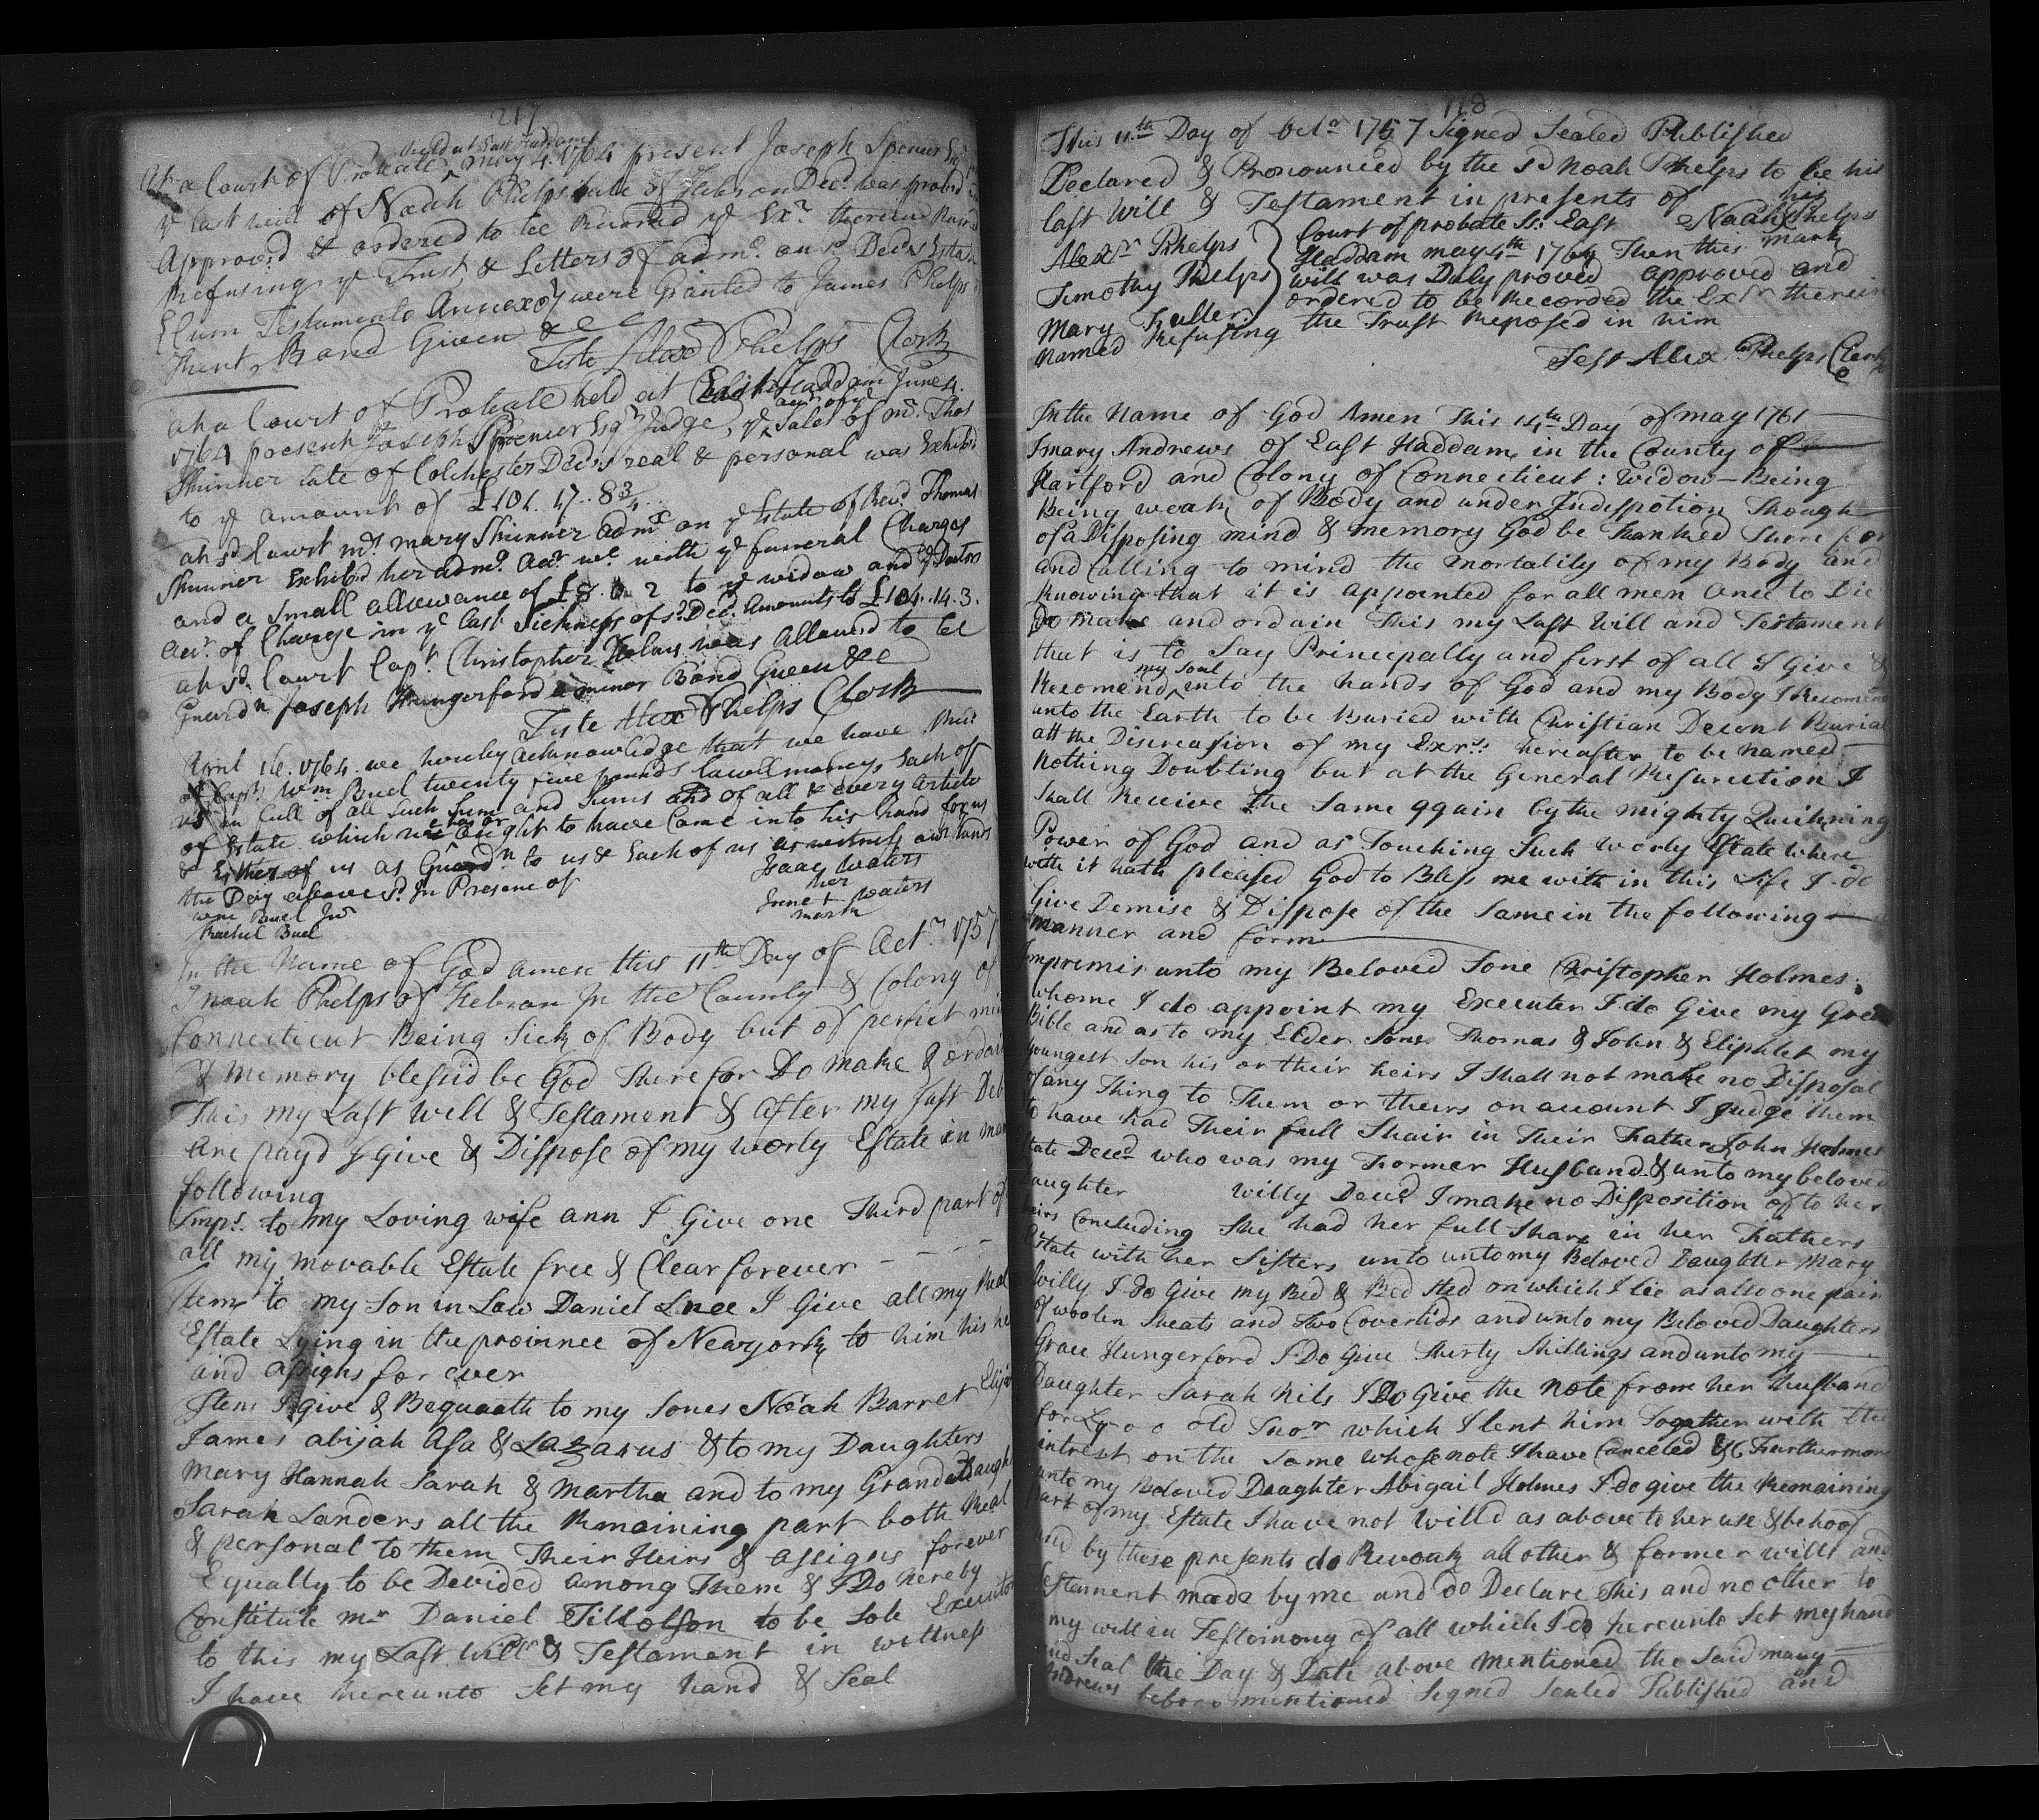 217
held at East Haddam
At a Court of Probate May 4. 1764 present Joseph Spencer Esqr
ye Last will of Noah Phelps late of Hebron Decd. was proved
Approved & ordered to be Recorded ye Exr. therein Named
Refusing ye Trust & Letters of admn. on sd. Decds Estate
Cum Testamento Annexo were Granted to James Phelps
Bond Given &c
Teste Alexr Phelps Clerk
at a Court of Probate held at East Haddam June 4.
1764 present Joseph Spencer Esqr Judge, ye acct of ye Sales of mr. Thos
Skinner late of Colchester Decds real & personal was Exhibd
to ye amount of £101. 17.. 8 3/4
at sd. Court mrs. mary Skinner admx on ye Estate of Revd Thomas
Skinner Exhibd her admn. acct. wc. with ye funeral Charges
and a Small allowance of £8. 6. 2 to ye widow and ye Doctors
acct. of Charge in ye last Sickness of sd. Decd. Amounts to £104..14.3.
at sd. Court Capt. Christopher Holms was allowed to be
Guardn Joseph Hungerford a minor Bond Given &c
Teste Alexr Phelps Clerk
April 16. 1764. we hereby acknowledge that we have Recd
of Capt. Wm Buel twenty five pounds lawll money, Each of
us in full of all Such Sum and Sums and of all & every article
of Estate which was or ought to have Came into his hand for us
& Either of us as Guardn to us & Each of us as witness our hands
the Day above sd. In Presence of Isaac Waters
wm Buel Junr her
Rachel Buel June + Waters
mark
In the Name of God amen this 11th Day of Octr. 1757
I noah Phelps of Hebron In the County & Colony of
Connecticut Being Sick of Body but of perfict mi
& memory blessid be God therefor Do make & ordai
This my Last will & Testament & after my Just Deb
are payd I Give & Dispose of my worly Estate in man
following
Imps. to my Loving wife ann I Give one Third part of
all my movable Estate free & Clear forever
Item to my Son in Law Daniel Lnee I Give all my Real
Estate Lying in the provinee of Newyork to him his he
and assighs for ever
Item I give & Bequeath to my Sones Noah Barret Elija
James abijah Asa & Lazarus & to my Daughters
mary Hannah Sarah & martha and to my Grand Daught
Sarah Landers all the Remaining part both Real
& personal to them Their Heirs & assigns forever
Equally to be Devided among Them & I Do hereby
Constitute mr Daniel Tillolson to be Sole Executor
to this my Last will & Testament in wittness
I have hereunto Set my hand & Seal
118
This 11th Day of Octr 1757 Signed Sealed Published
Declared & Pronounced by the sd Noah Phelps to be his
last Will & Testament in presents of his
Alexr Phelps Court of probate Ss: East Noah X Phelps
Timothy Phelps Haddam may 4th 1764 Then this mark
Mary Fuller will was Duly proved approved and
ordered to be Recorded the Exr therein
Named Refusing the Trust Reposed in him
Test Alexr Phelps Clerk
In the Name of God Amen This 14th Day of may 1761
I mary Andrews of East Haddam in the County of
Hartford and Colony of Connecticut: Widow - Being
Being weak of Body and under Indispotion Though
of a Disposing mind & memory God be thanked There for
and Calling to mind the mortality of my Body and
Knowing that it is appointed for all men once to Die
Do make and ordain This my Last Will and Testament
that is to Say Principally and first of all I Give &
Recomend my Soul into the hands of God and my Body I Recomend
unto the Earth to be Buried with Christian Decent Burial
att the Discreasion of my Exrs: hereafter to be named
Nothing Doubting but at the General Resurection I
Shall Receive The Same again by the mighty Quickning
Power of God and as Touching Such worly Estate where
with it hath pleased God to Bless me with in this Life I do
Give Demise & Dispose of the Same in the following
manner and form
Imprimis unto my Beloved Sone Christopher Holmes:
whome I do appoint my Executer I do Give my Great
Bible and as to my Elder Sons Thomas & John & Eliphlet my
youngest Son his or their heirs I Shall not make no Disposal
of any Thing to Them or theirs on account I judge them
to have had Their full Shair in Their Father John Holmes
Late Decd who was my Former Husband & unto my beloved
Daughter Willy Decd I make no Disposition of to her
heirs Concluding She had her full Share in her Fathers
Estate with her Sisters unto unto my Beloved Daughter Mary
Willy I do Give my Bed & Bed Sted on which I lie as also one pair
of woolen Sheats and Two Coverlids and unto my Beloved Daughters
Grace Hungerford I Do Give Thirty Shillings and unto my
Daughter Sarah Nils I Do Give the Note from her Husband
old Tenor which I lent him Together with the
intrest on the Same whose note I have Canceled & Furthermore
unto my Beloved Daughter Abigail Holmes I do give the Remaining
part of my Estate I have not Willd as above to her use & behoof
and by these presents do Revoak all other & former wills and
Testament made by me and do Declare This and no other to
my will in Testoimony of all which I do hereunto Set my hand
and Seal the Day & Date above mentioned the Said mary
Andrews before mentioned Signed Sealed Published and